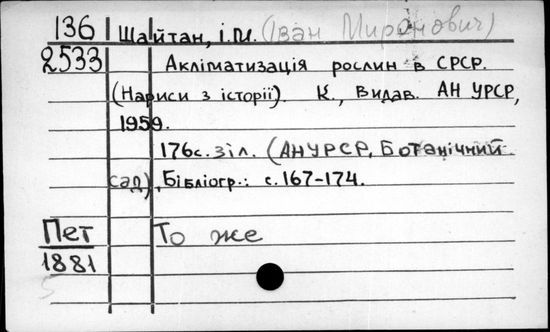 136 Шайтан, І.М. (Іван Миронович)
2533 Акліматизація рослин в СРСР.
(Нариси з історії). К., Видав. АН УРСР,
1959.
176с. з іл. (АН УРСР, Ботанічний
сад). Бібліогр.: с. 167-174.
Пет То же
1881